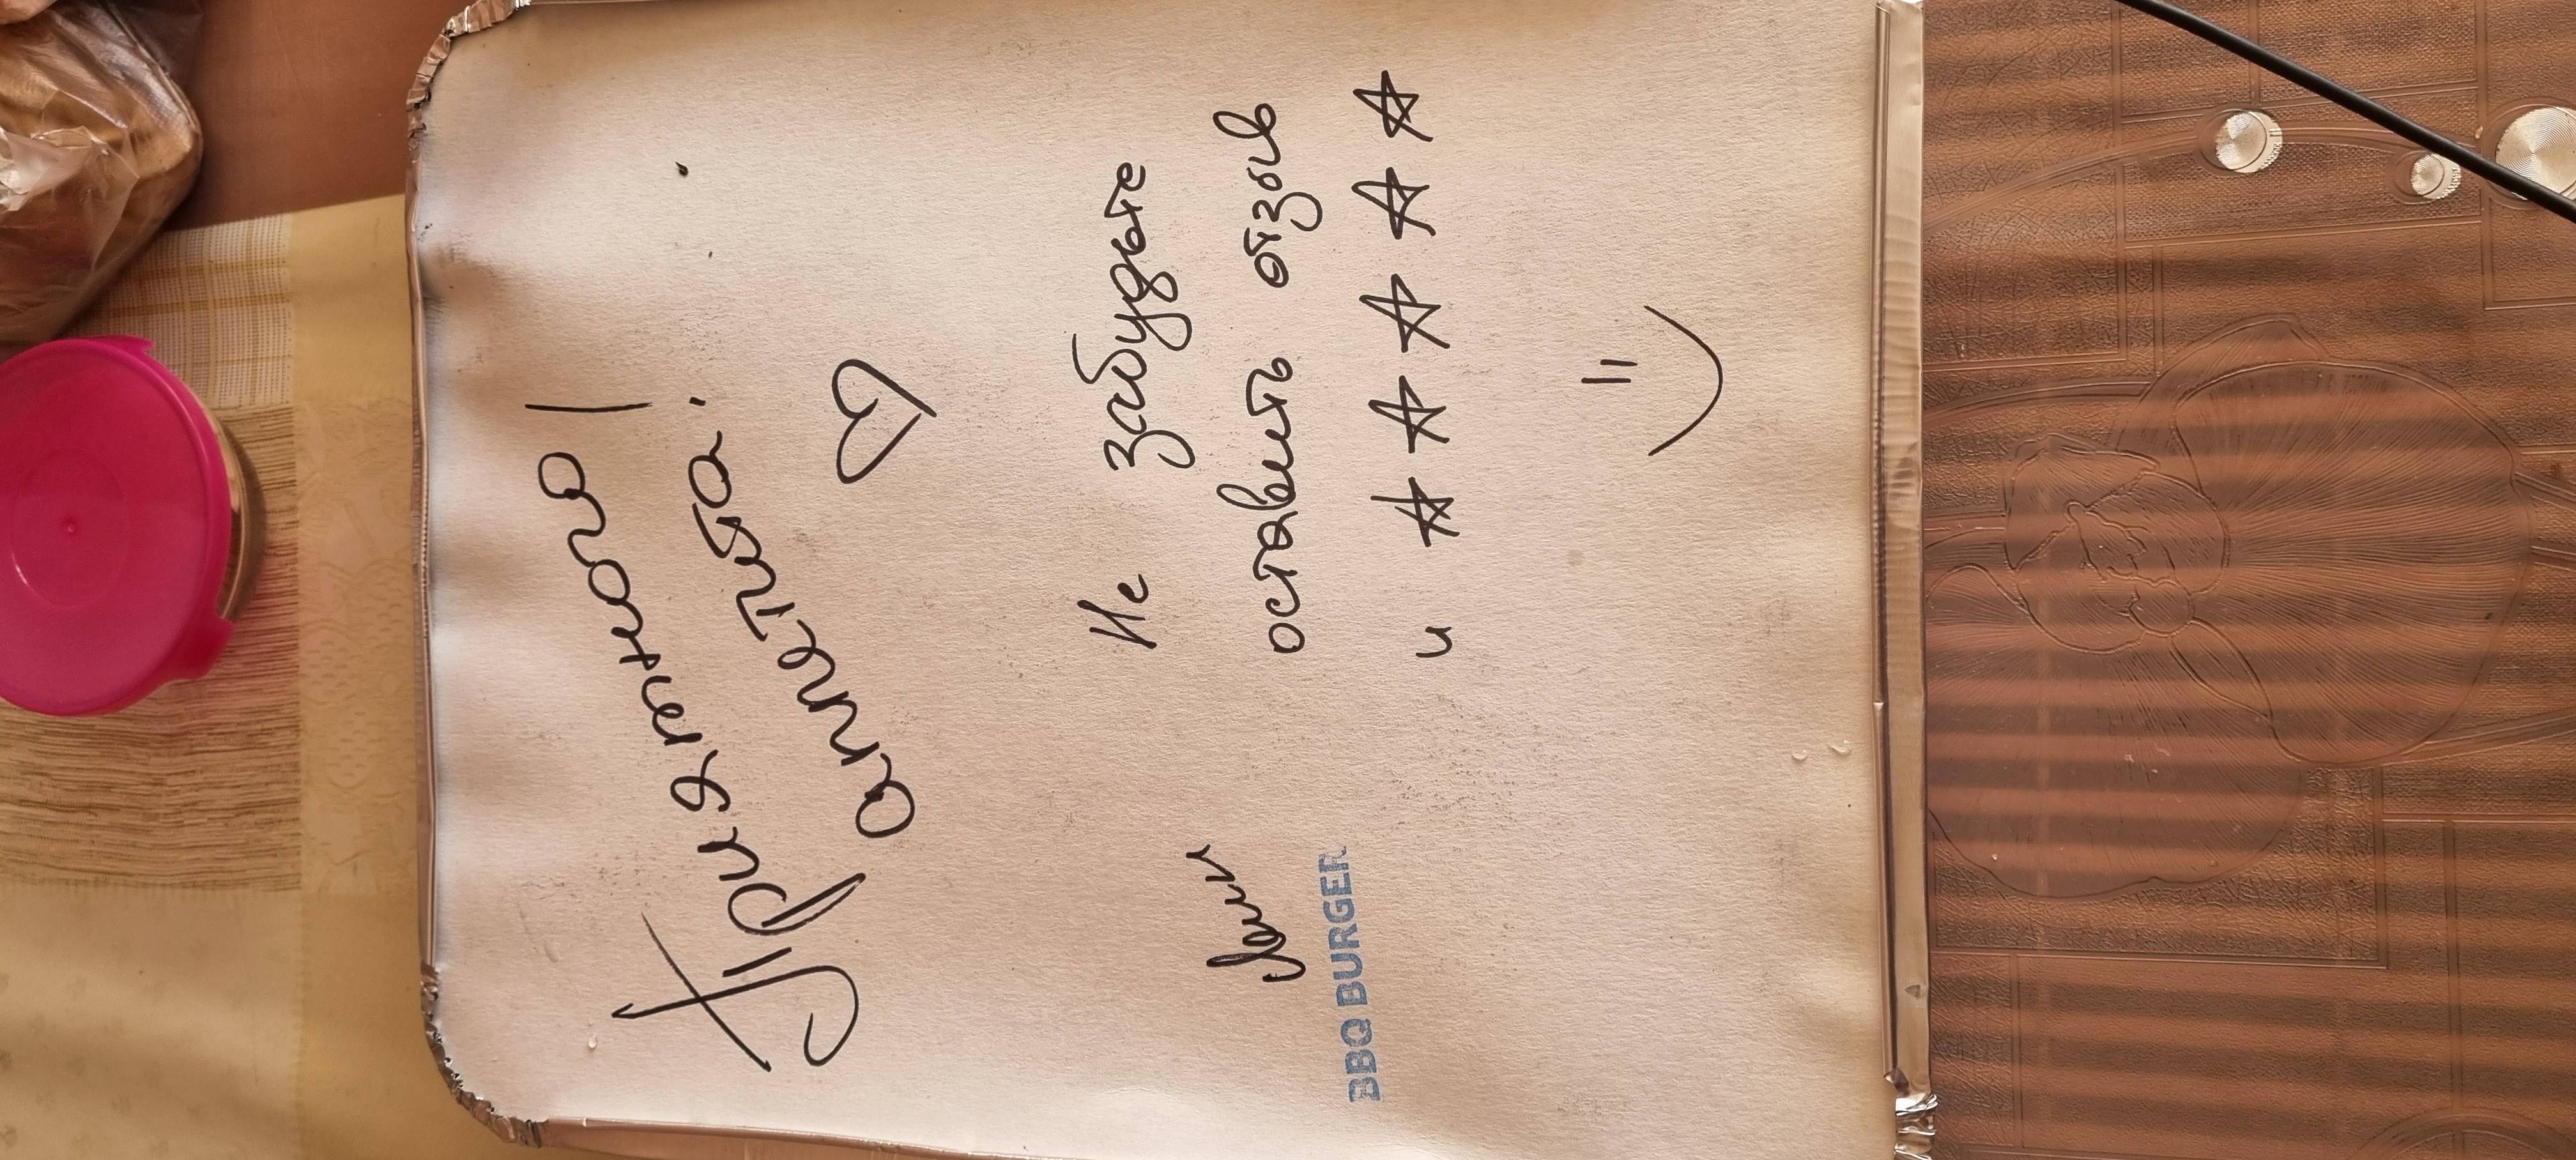 Приятного!
аппетита.
♡
Не забудьте
оставить отзыв
и ☆☆☆☆☆
BBQ BURGER